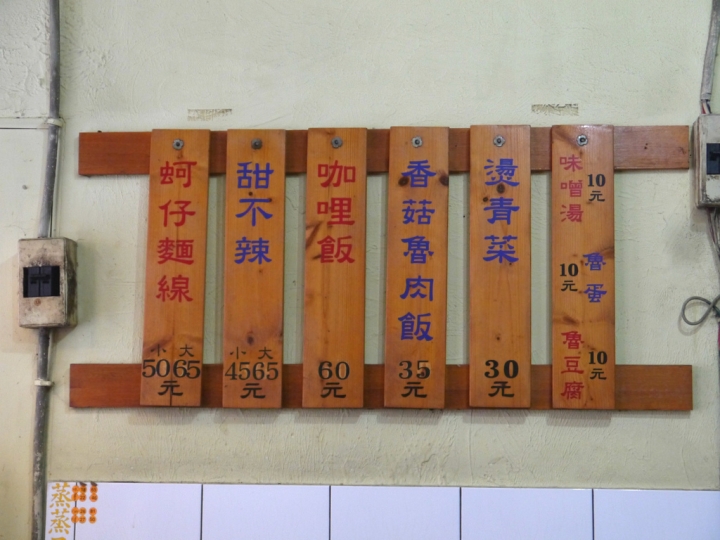 蚵仔麵線
小 大
50 65
元
甜不辣
小 大
45 65
元
咖哩飯
60
元
香菇魯肉飯
35
元
燙青菜
30
元
味噌湯
10
元
魯蛋
10
元
魯豆腐
10
元
蒸蒸